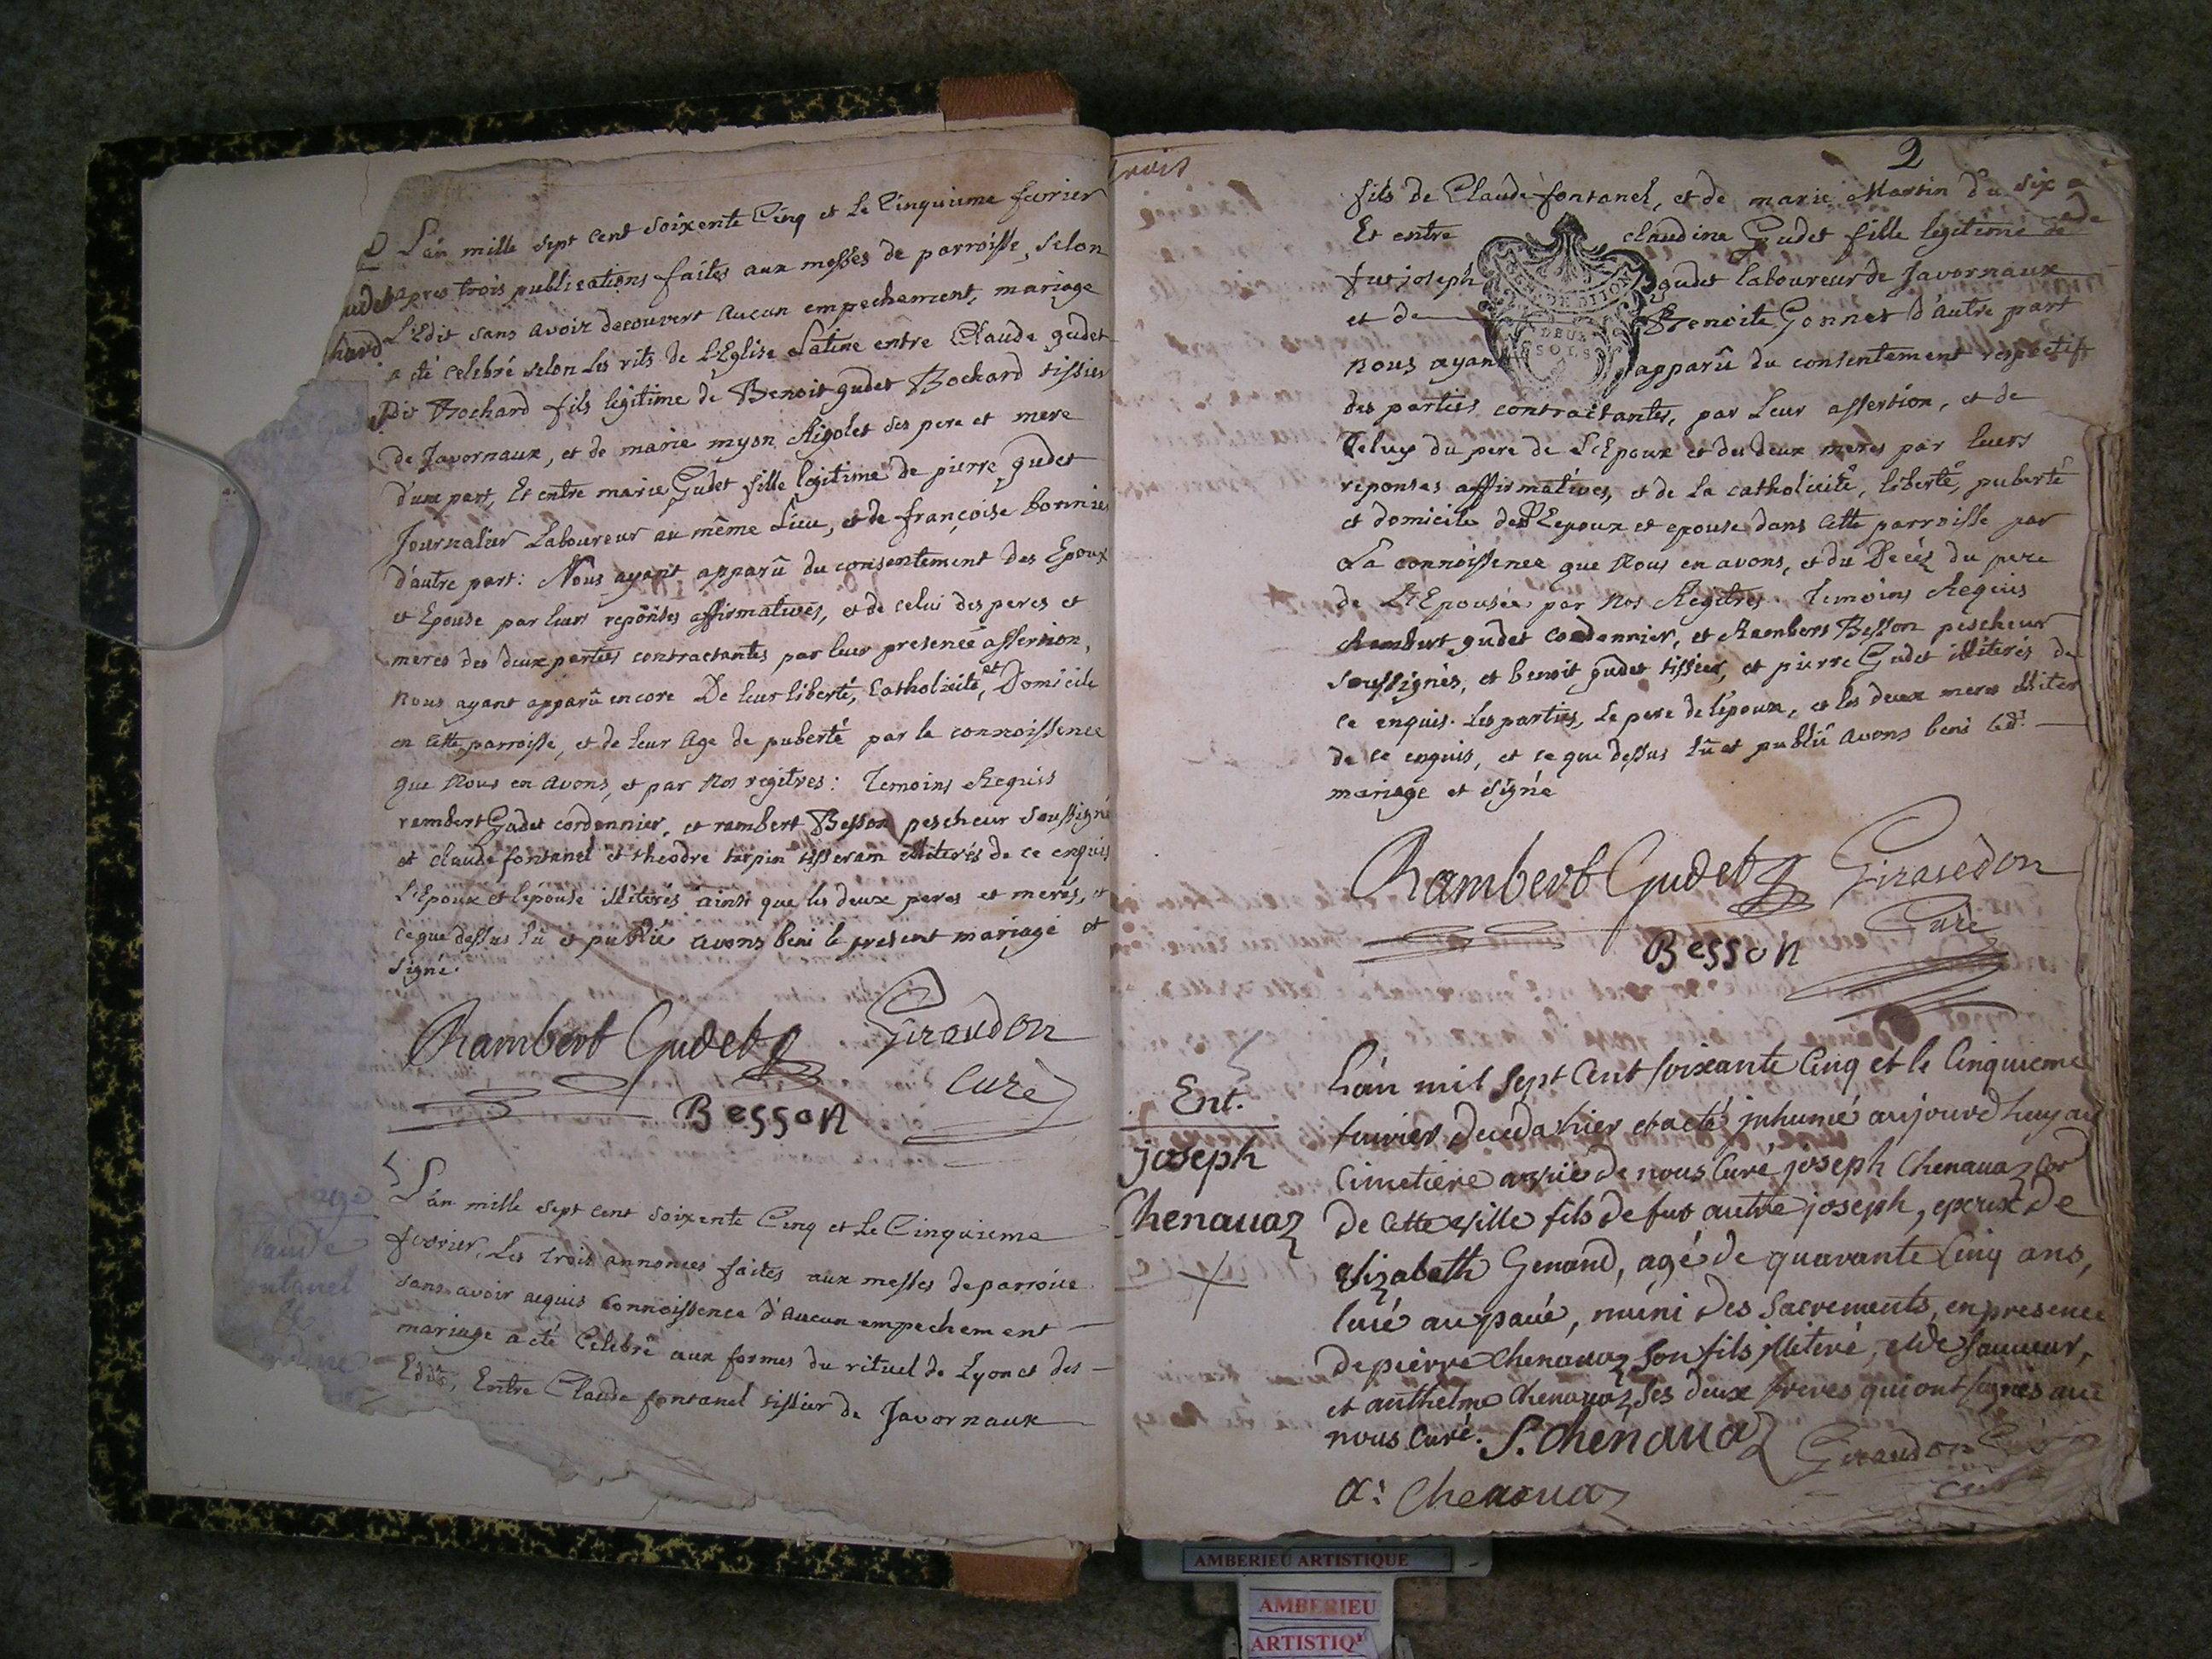 L'án mille sept cent soixente Cinq et le Cinquieme fevrier
apres trois publications faites aux messes de parroisse, selon
L'Edit sans avoir decouvert aucun empechement, mariage
a eté celebré selon les rits de L'Eglise Latine entre Claude gudet
dit Bochard fils legitime de Benoit gudet Bochard tissier
de Javornaux, et de marie myon Rigolet ses pere et mere
d'une part, Et entre marie Gudet fille legitime de pierre gudet
Journalier Laboureur au même Lieu, et de françoise bonnier
d'autre part: Nous ayant apparû du consentement des Epoux
et Epouse par leurs reponses affirmatives, et de celui des peres et
meres des deux parties contractantes par leur presence assertion,
nous ayant apparû encore De leur liberté, Catholicité, et Domicile
en cette parroisse, et de leur Age de puberté par la connoissence
que Nous en avons, et par Nos regitres: Temoins Requiss
rembert Gudet cordonnier, et rambert Besson pescheur soussigné
et claude fontanel et theodre turpin tisseram illiterés de ce enquis
L'Epoux et l'epouse illiterés ainsi que les deux peres et merés, et
ce que dessus lû et publié avons beni le present mariage et
signé.
Rambert Gudet Giraudon
Curé
Besson
L'án mille sept cent soixente Cinq et Le Cinquieme
fevrier, Les trois annonces faites aux messes de parroisse
sans avoir acquis connoissence d'aucun empechement
mariage a eté Celebré aux formes du rituel de Lyon et des
Edits, Entre Claude fontanel tissier de Javornaux
2
fils de Claude fontanel, et de marie Martin d'a
Et entre claudine Gudet fille legitime de
fut joseph gudet laboureur de Javornaux
et de Benoite Gonnet d'autre part
DEUX
SOLS
nous ayant apparû du consentement respectif
des parties contractantes, par Leur assertion, et de
Celuy du pere de L'Epoux et des deux meres par leurs
reponses affirmatives, et de la catholicité, liberté, puberté
et domicile de L'Epoux et epouse dans Cette parroisse par
La connoissence que Nous en avons, et du Decéz du pere
de L'Epousée par Nos Regitres. Temoins Requis
Rambert gudet cordonnier, et Rambert Besson pescheur
soussignés, et benoit gudet tissier, et pierre Gudet illiterés de
ce enquis. Les parties, Le pere de l'epoux, et les deux meres illiter
de ce enquis, et ce que dessus lû et publiû avons beni led.
mariage et signé
Rambert Gudet Giraudon
Curé
Besson
Ent.
joseph
Chenavaz
L'án mil sept Cent soixante Cinq et le Cinquieme
fevrier deceda hier et a eté inhumé aujourdhuy au
Cimetiere de nous Curé joseph Chenavaz
de Cette ville fils de fut autre joseph, epoux de
Elizabeth Genand, agé de quarante Cinq ans,
muni des Sacrements, en presence
de pierre Chenavaz son fils illiteré, et de sauveur,
et anthelme Chenavaz ses deux freres qui ont signés avec
nous Curé. S. Chenavaz Giraudon Curé
A: Chenavaz
AMBERIEU ARTISTIQUE
AMBERIEU
ARTISTIQ